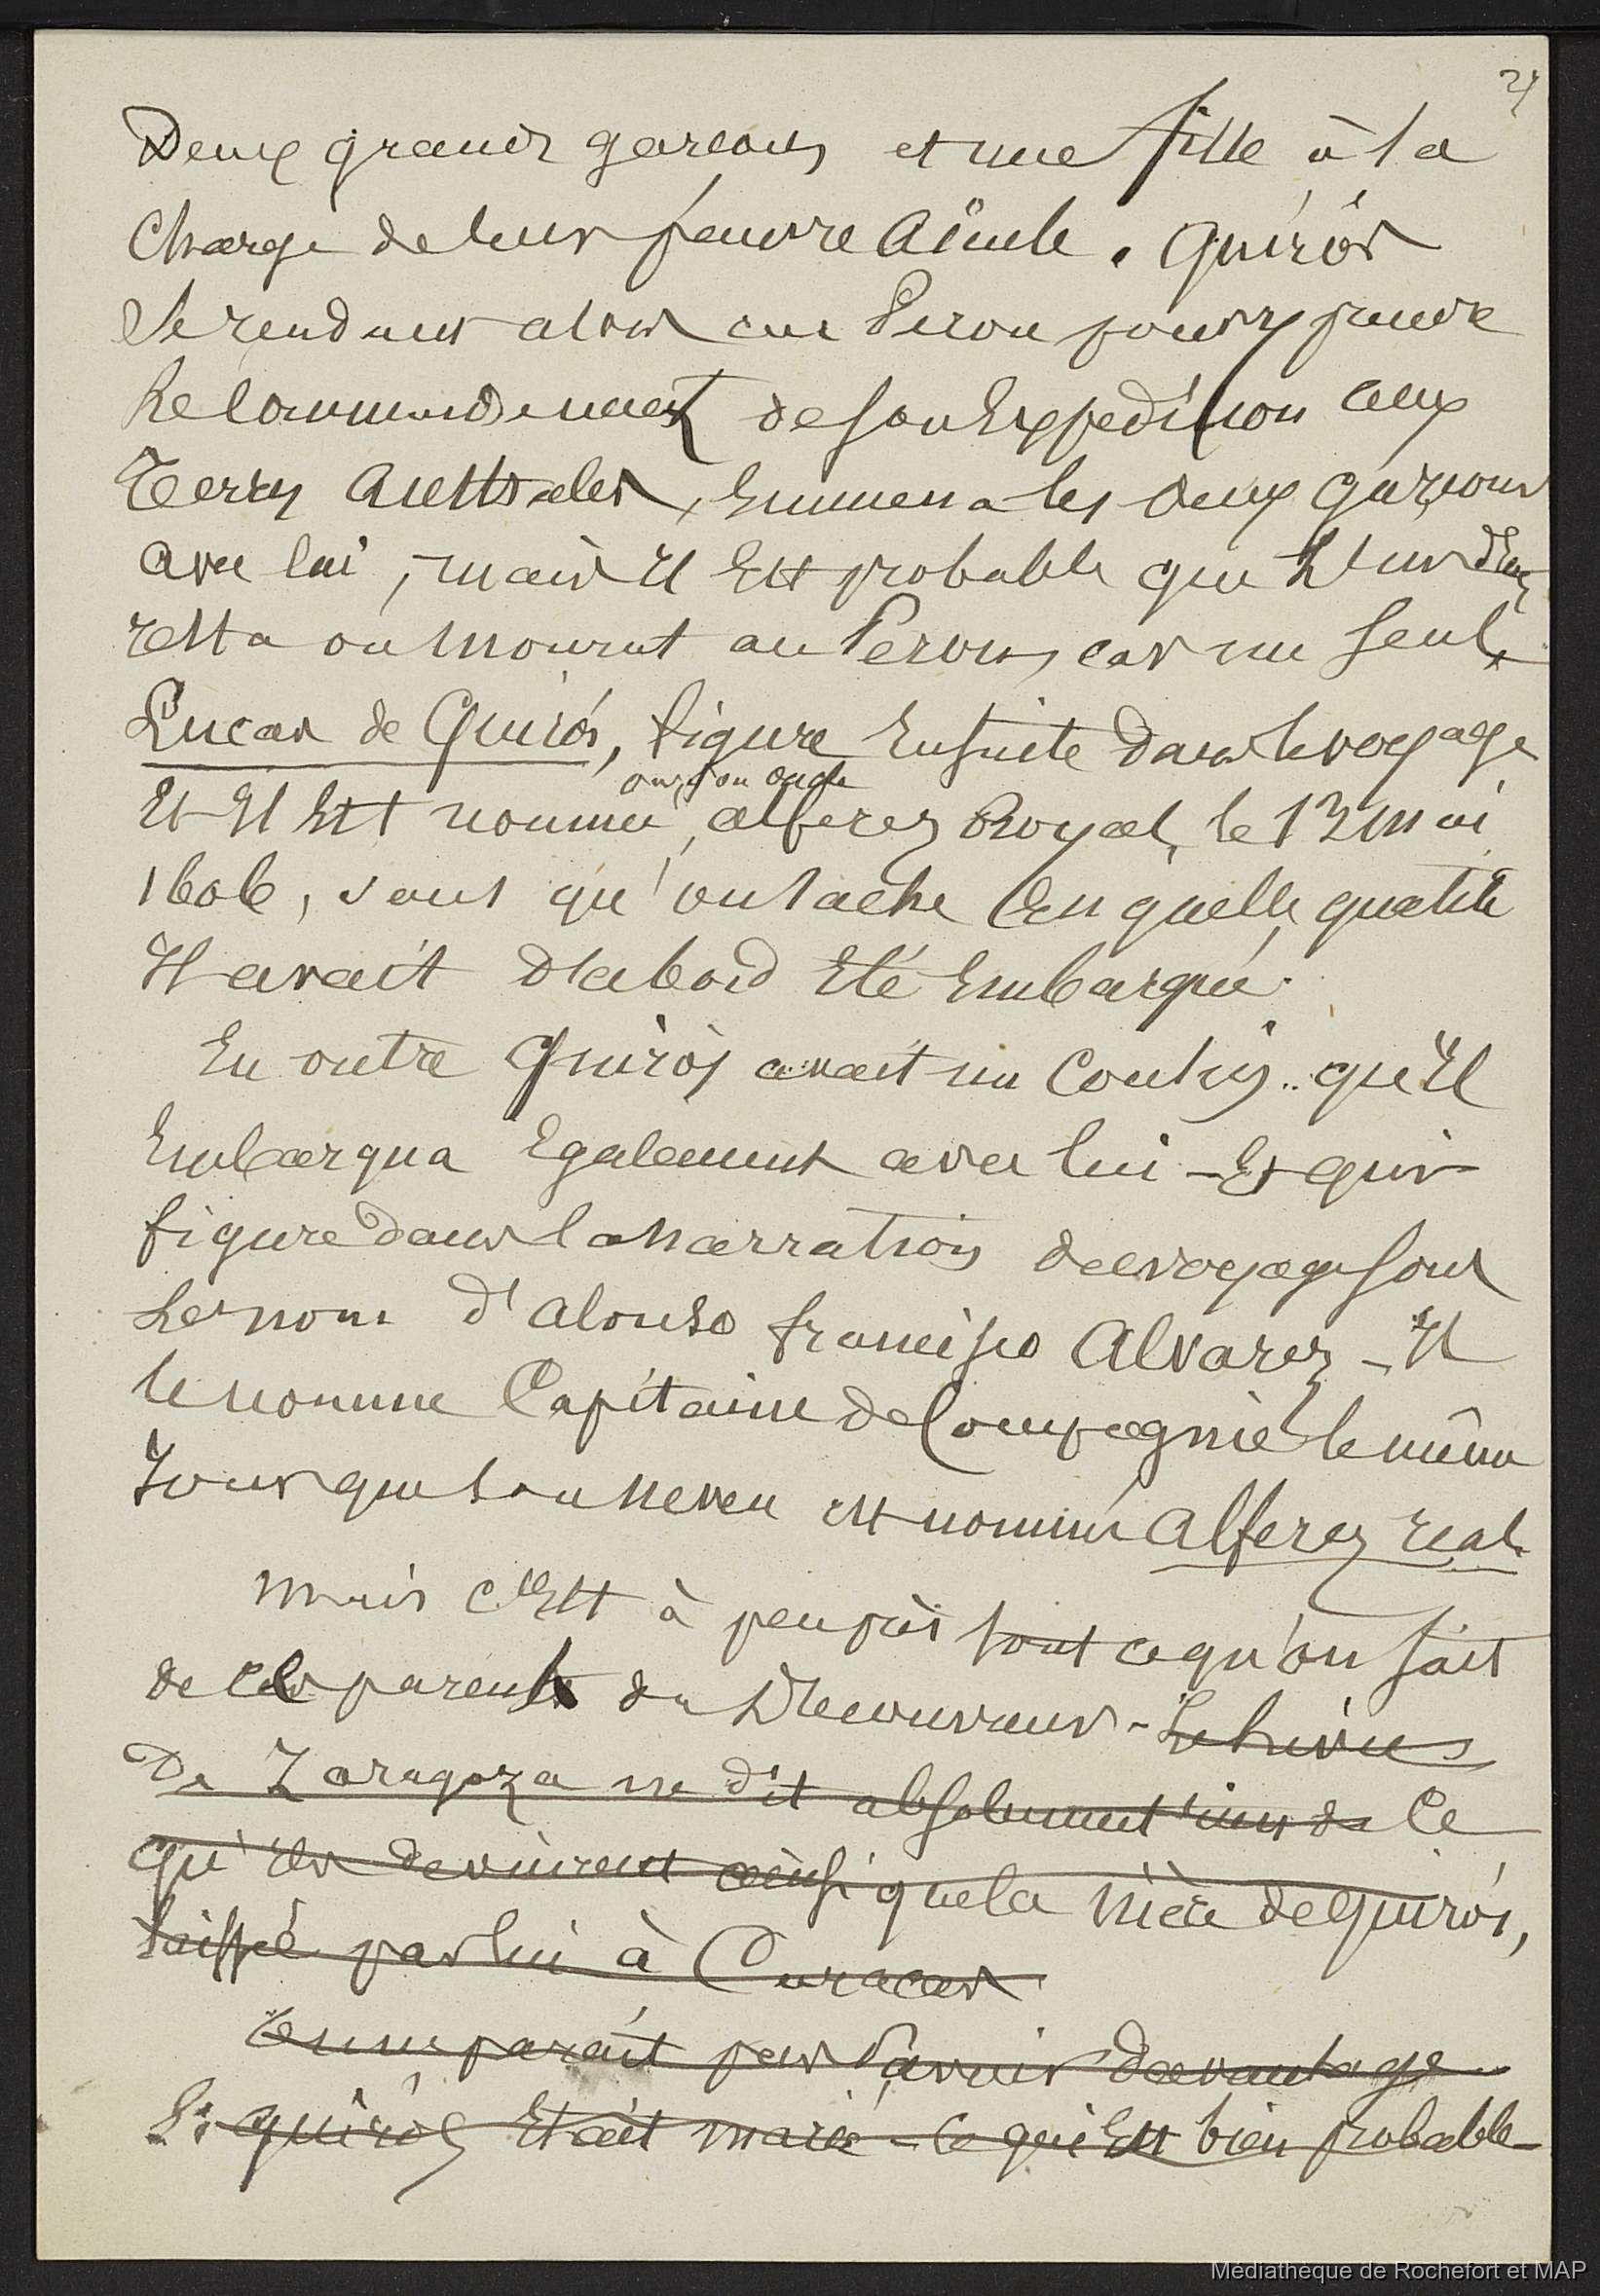 21
Deux grands garcons et une fille à la
charge de leur pauvre aieule. Quirós
se rendant alors au Perou pour y prendre
le commandement de son Expedition aux
Terres Australes, Emmena les deux garçons
avec lui, mais il Est probable que L'un d'Eux
resta ou mourut au Perou, car un seul,
Lucas de Quirós, figure Ensuite dans le voyage
par son oncle
Et Il Est nommé, alferez Royal, le 13 mai
1606, sans qu'on sache En quelle qualité
Il avait d'abord Eté Embarqué.
En outre Quirós avait un Cousin.. qu'Il
Embarqua Egalement avec lui - Et qui
figure dans la Narration du voyage sous
le nom d'Alonso Francisco Alvarez - Il
le nomme Capitaine de Compagnie le même
Jour que son neveu est nommé Alferez real.
Mais c'Est à peu près tout ce qu'on sait
de ces parents du Decouvreur - Le livre
De Zaragoza ne dit absolument rien de Ce
qu'ils devinrent ainsi que la Mère de Quirós,
laissée par lui à Caracas
On ne parait pas savoir davantage
Si Quirós Etait marié - Ce qui Est bien probable -
Médiathèque de Rochefort et MAP